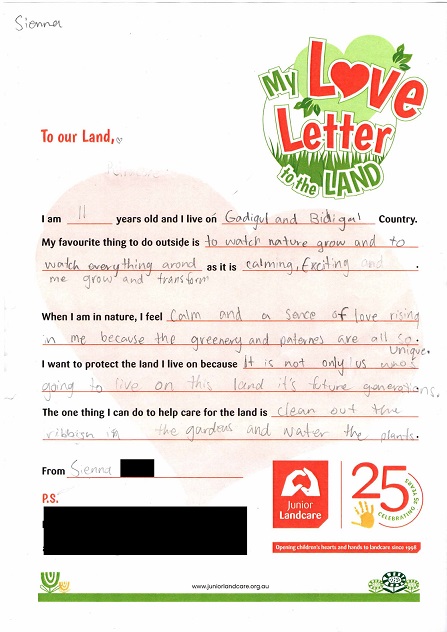 Sienna
My Love Letter to the LAND
To our Land,
I am 11 years old and I live on Gadigul and Bidigal Country.
My favourite thing to do outside is to watch nature grow and to
watch everything arond as it is calming, Exciting and
me grow and transform
When I am in nature, I feel calm and a sence of love rising
in me because the greenery and paternes are all so
Unique.
I want to protect the land I live on because It is not only us who's
going to live on this land it's future generations.
The one thing I can do to help care for the land is clean out the
ribbish in the gardens and water the plants.
From Sienna
P.S.
Junior
Landcare
25
CELEBRATING 25 YEARS
Opening children's hearts and hands to landcare since 1998
www.juniorlandcare.org.au